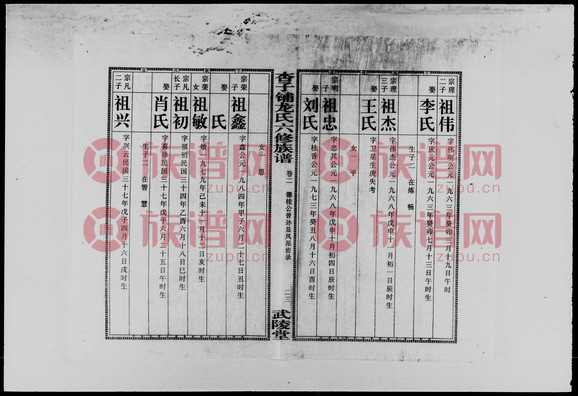 宗理二子
祖伟
字伟明公元一九六三年癸卯三月十九日午时生
娶
李氏
字庆元公元一九六三年癸卯七月十三日午时生
生子二 在炼 畅
宗理三子
祖杰
字伟杰公元一九六八年戊申十一月初一日辰时生
娶
王氏
字卫星生庚失考
女 平
宗明子
祖忠
字忠其公元一九六八年戊申十月初四日辰时生
娶
刘氏
字桂香公元一九七三年癸丑八月十六日酉时生
杳子铺龙氏六修族谱
卷二
德桂公曾孙显凤派齿录
二三
武陵堂
女 思
宗荣子
祖鑫
字鑫公元一九八四年甲子六月二十七日丑时生
娶
氏
宗荣女
祖敏
字敏一九七九年己未十一月十二日亥时生
宗凡长子
祖初
字福初民国三十四年乙酉六月十八日巳时生
娶
肖氏
字喜珍民国三十七年戊子六月二十五日午时生
生子二 在智 慧
宗凡二子
祖兴
字兴云民国三十七年戊子四月十六日戌时生
族谱网
zupu.cn
族谱网
zupu.cn